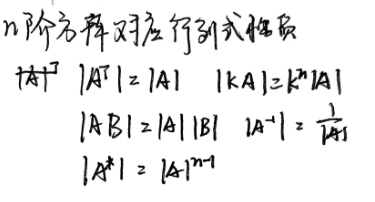 n阶方阵对应行列式性质
|Aᵀ| = |A| |kA| = kⁿ|A|
|AB| = |A||B| |A⁻¹| = 1/|A|
|A*| = |A|ⁿ⁻¹